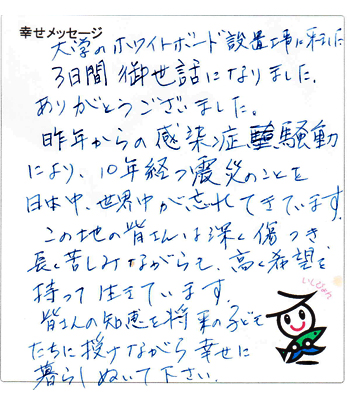 幸せメッセージ
大学のホワイトボード設置工事に来ました
3日間御世話になりました。
ありがとうございました。
昨年からの感染症騒動
により、10年経つ震災のことを
日本中、世界中が忘れてきています。
この地の皆さんは深く傷つき
長く苦しみながらも、高く希望を
持って生きています。
皆さんの知恵を将来の子ども
たちに授けながら幸せに
暮らしぬいて下さい。